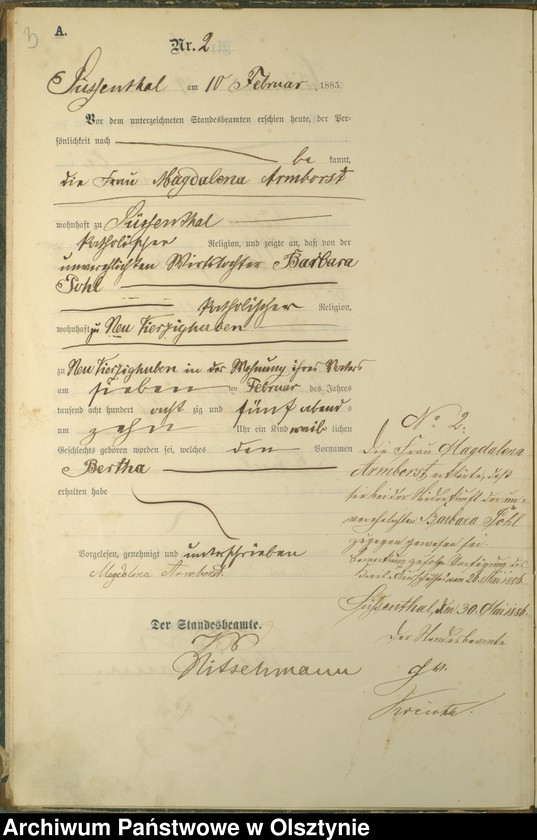 B
A.
Nr. 2
Süssenthal am 10 Februar 1885.
Vor dem unterzeichneten Standesbeamten erschien heute, der Per-
sönlichkeit nach
be kannt,
die Frau Magdalena Armborst
wohnhaft zu Süssenthal
katholischer Religion, und zeigte an, daß von der
unverehlichten Wirthstochter Barbara
Pohl
katholischer Religion,
wohnhaft zu Neu Vierzighuben
zu Neu Vierzighuben in der Wohnung ihres Vaters
am sieben ten Februar des Jahres
tausend acht hundert acht zig und fünf abend s
um zehn Uhr ein Kind weib lichen
Geschlechts geboren worden sei, welches den Vornamen
Bertha
erhalten habe
Vorgelesen, genehmigt und unterschrieben
Magdalena Armborst.
Der Standesbeamte.
Nitschmann
No 2.
Die Frau Magdalena
Armborst, erklärte, daß
sie bei der Niederkunft der un-
verehelichten Barbara Pohl
zugegen gewesen sei.
zufolge Verfügung des
vom 26. Mai 1886.
Süssenthal, den 30. Mai 1886.
Der Standesbeamte
Archiwum Państwowe w Olsztynie